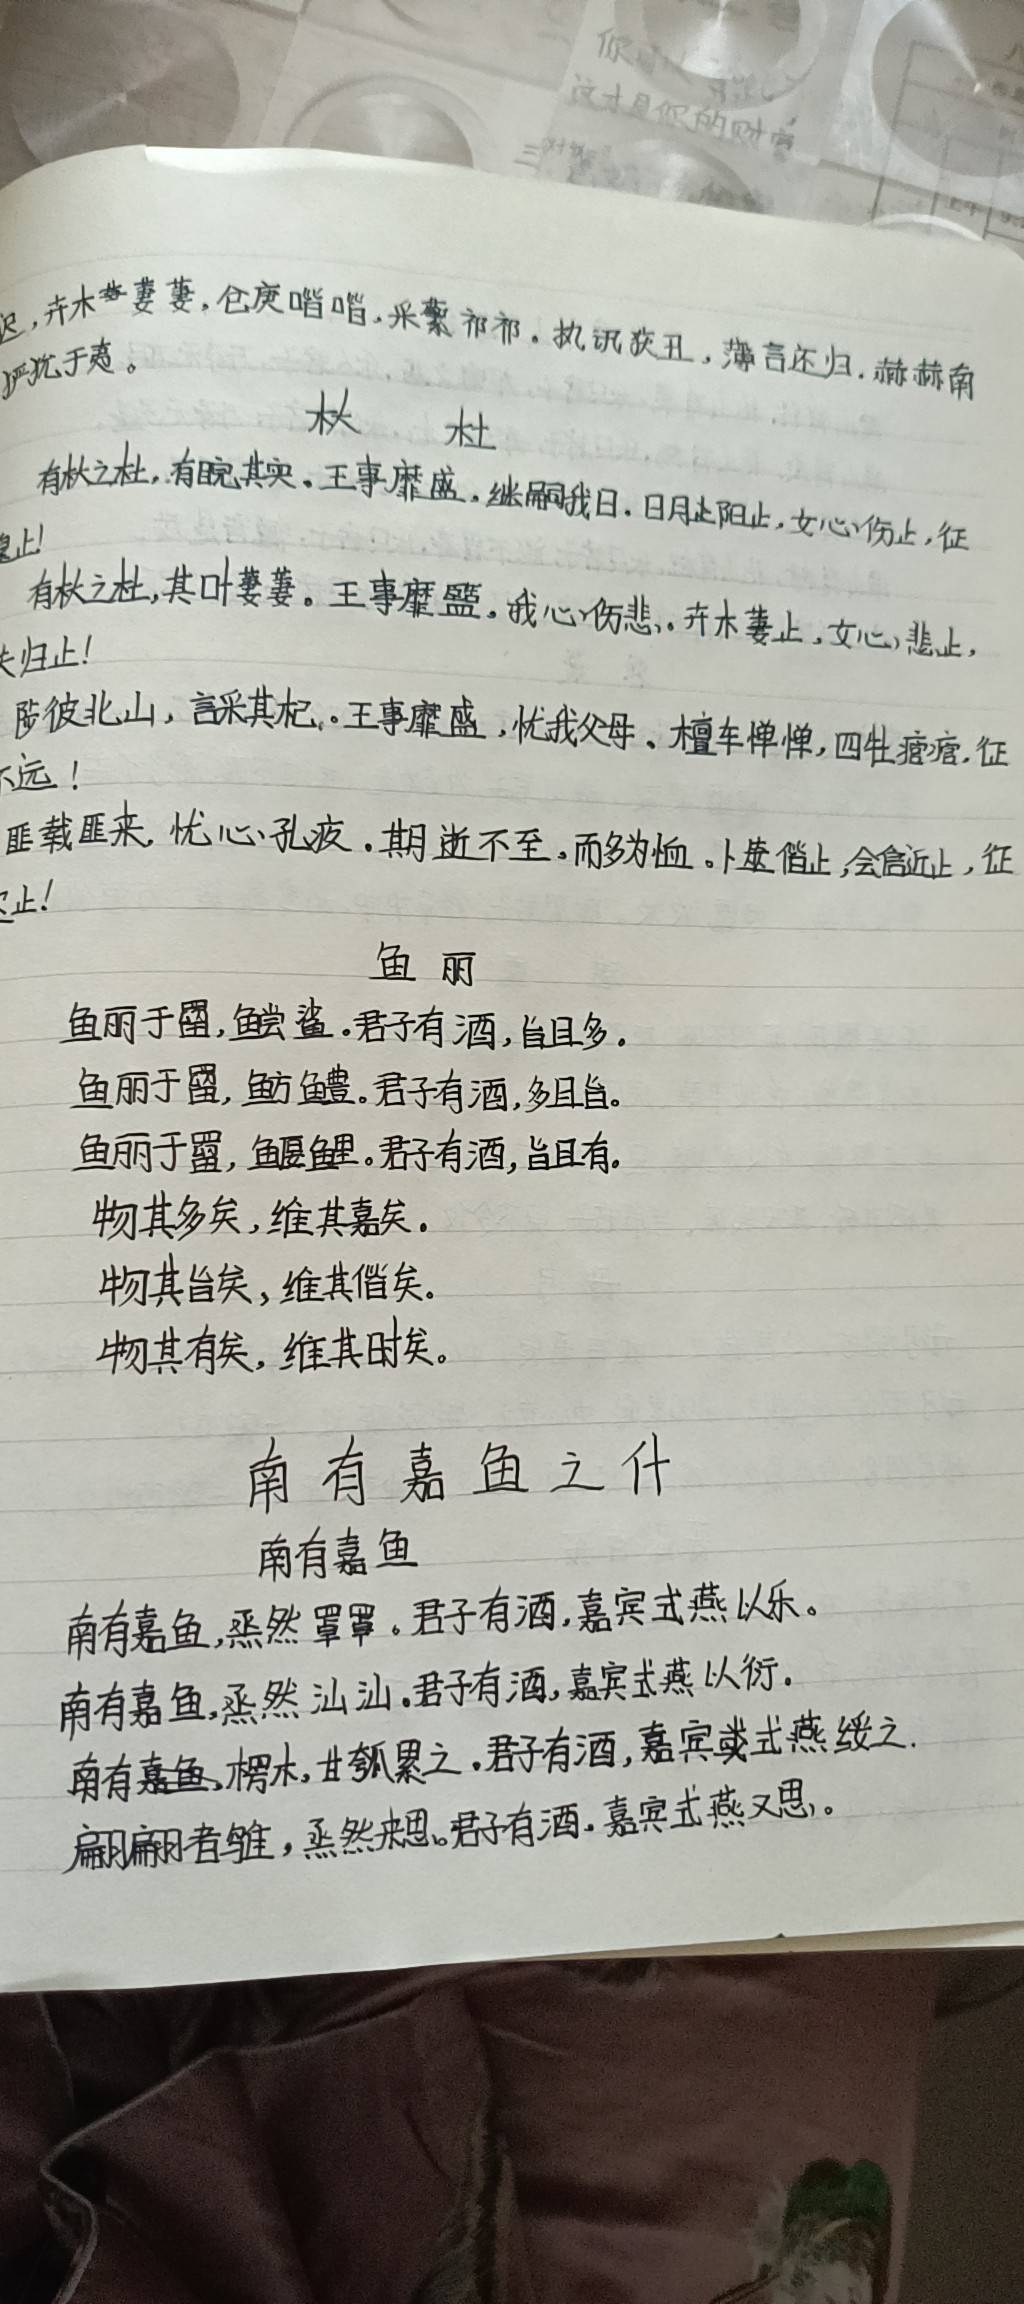 你
这才是你的财富
三
迟,卉木萋萋,仓庚喈喈,采蘩祁祁。执讯获丑,薄言还归.赫赫南
严犹于夷。
杕 杜
有杕之杜,有睆其实。王事靡盛.继嗣我日.日月止阳止,女心伤止,征
遑止!
有杕之杜,其叶萋萋。王事靡盬。我心伤悲.卉木萋止,女心悲止,
夫归止!
陟彼北山,言采其杞。王事靡盛,忧我父母、檀车惮惮,四牡痯痯.征
不远!
匪载匪来.忧心孔疚.期逝不至,而多为恤。卜筮偕止,会言近止,征
迩止!
鱼 丽
鱼丽于罶,鲿鲨.君子有酒,旨且多.
鱼丽于罶,鲂鳢。君子有酒,多且旨。
鱼丽于罶,鰋鲤。君子有酒,旨且有。
物其多矣,维其嘉矣.
物其旨矣,维其偕矣.
物其有矣,维其时矣。
南有嘉鱼之什
南有嘉鱼
南有嘉鱼,烝然罩罩。君子有酒,嘉宾式燕以乐。
南有嘉鱼,烝然汕汕.君子有酒,嘉宾式燕以衍.
南有嘉鱼,樛木,甘瓠累之.君子有酒,嘉宾式燕绥之.
翩翩者雏,烝然来思。君子有酒.嘉宾式燕又思。